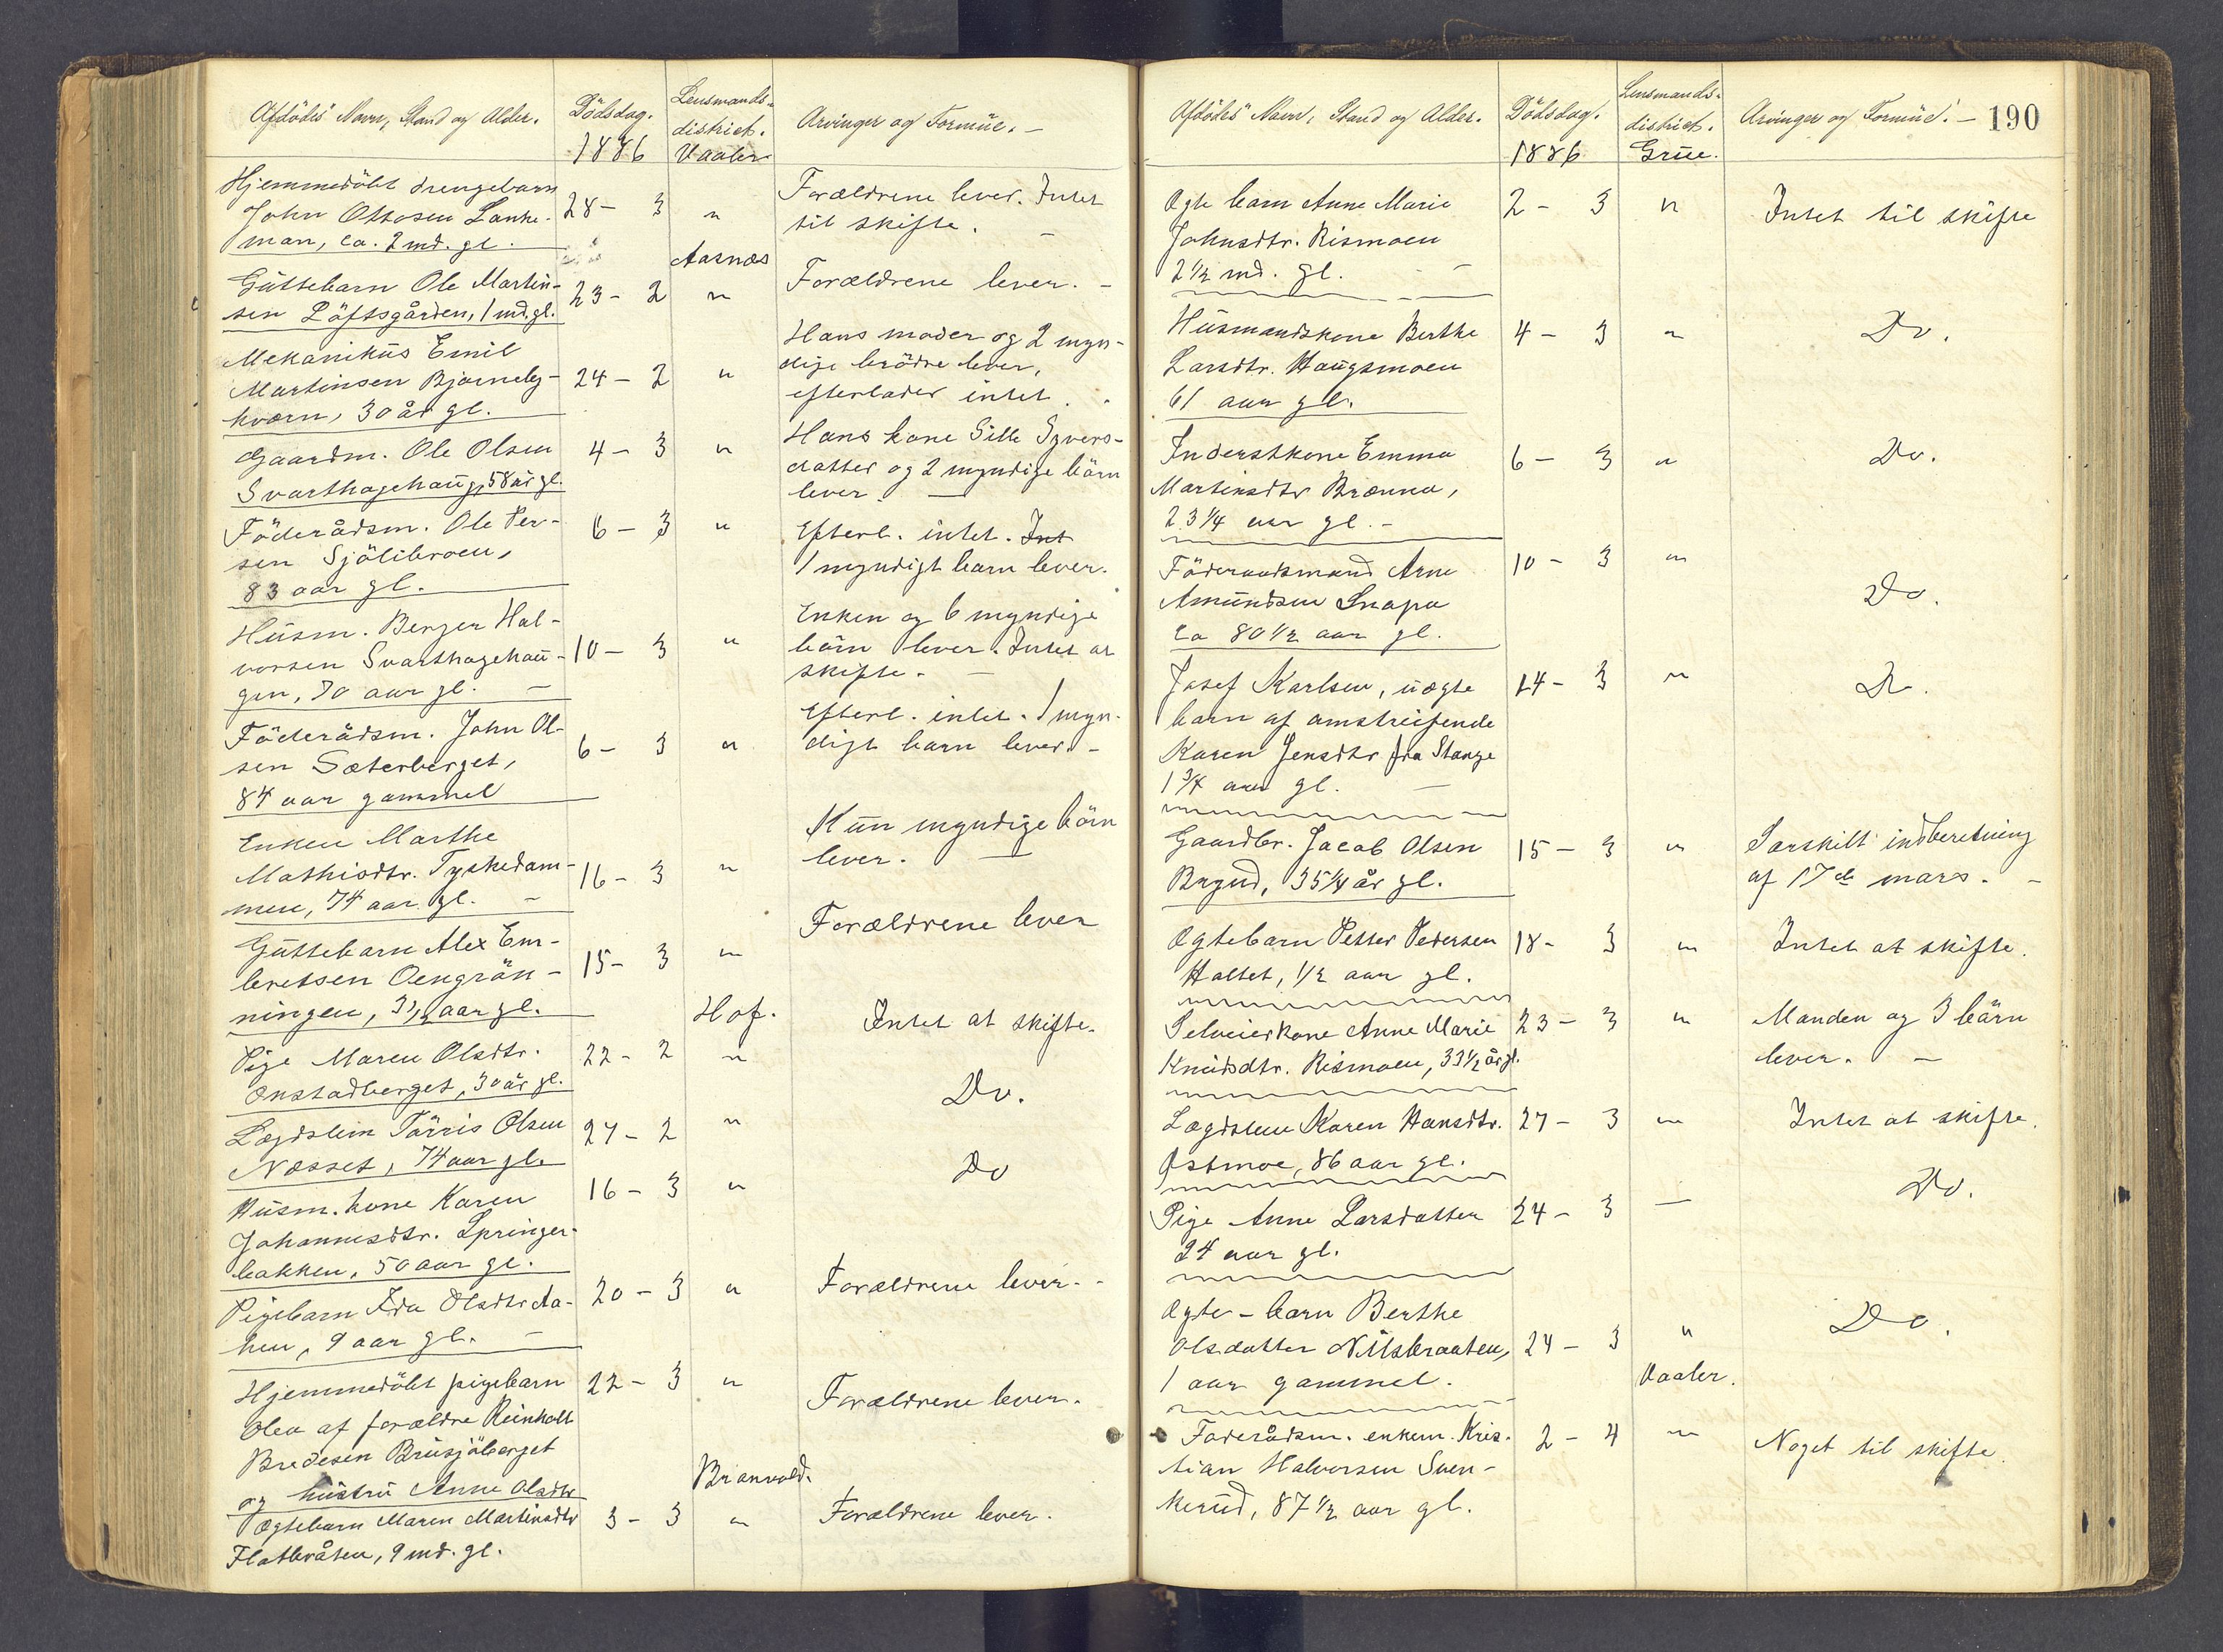 Afdödes Navn, Stand og Alder.
Dödsdag.
1886
Lensmands-
district.
Vaaler
Arvinger og Formue. —
Hjemmedöbt drengebarn
John Ottosen Lanke-
man, ca. 2 md. gl.
28 - 3
"
Forældrene lever. Intet
til skifte. —
Aasnæs
Guttebarn Ole Martin-
sen Löftsgården, 1 md. gl.
23 - 2
"
Forældrene lever. —
Mekanikus Emil
Martinsen Bjørneby-
kværn, 30 år gl.
24 - 2
"
Hans moder og 2 myn-
dige brödre lever,
efterlader intet.
Gaardm. Ole Olsen
Svarthagehaug, 58 år gl.
4 - 3
"
Hans kone Sille Syvers-
datter og 2 myndige börn
lever. —
Föderådsm. Ole Per-
sen Sjölibroen,
83 aar gl.
6 - 3
"
Efterl. intet. Int
1 myndigt barn lever.
Husm. Berger Hal-
vorsen Svarthagehau-
gen, 70 aar gl. —
10 - 3
"
Enken og 6 myndige
börn lever. Intet at
skifte. —
Föderådsm. John Ol-
sen Sæterberget,
84 aar gammel
6 - 3
"
Efterl. intet. 1 myn-
digt barn lever. —
Enken Marthe
Mathisdtr. Tyskedam-
men, 74 aar gl. —
16 - 3
"
Kun myndige börn
lever. —
Guttebarn Alex Em-
bretsen Oengrön-
ningen, 3 1/2 aar gl.
15 - 3
"
Forældrene lever
Hof.
Pige Maren Olsdtr.
Onstadberget, 30 år gl.
22 - 2
"
Intet at skifte.
Lægdslem Törris Olsen
Næsset, 74 aar gl.
27 - 2
"
Do.
Husm. kone Karen
Johannesdtr. Springer-
bakken, 50 aar gl.
16 - 3
"
Do
Pigebarn Ida Olsdtr Aa-
hen, 9 aar gl. —
20 - 3
"
Forældrene lever. -
Hjemmedöbt pigebarn
Olea af forældre Reinholt
Bredesen Brusjöberget
og hustru Anne Olsdtr
22 - 3
"
Forældrene lever.
Branvold.
Ægtebarn Maren Martinsdtr
Flatbråten, 9 md. gl.
3 - 3
"
Forældrene lever.
Afdödes Navn, Stand og Alder.
Dödsdag.
1886
Lensmands-
district.
Grue.
Arvinger og Formue. — 190
Ægte barn Anne Marie
Johnsdtr. Rismoen
2 1/2 md. gl. —
2 - 3
"
Intet til skifte
Husmandskone Berthe
Larsdtr. Haugsmoen
61 aar gl.
4 - 3
"
Do.
Inderstkone Emma
Martinsdtr Brænna,
23 1/4 aar gl. —
6 - 3
"
Do.
Föderaadsmand Arne
Amundsen Snapa
ca 80 1/2 aar gl.
10 - 3
"
Do.
Josef Karlsen, uægte
barn af omstreifende
Karen Jensdtr fra Stange
1 3/4 aar gl. —
14 - 3
"
Do.
Gaardbr. Jacob Olsen
Brynd, 35 1/4 år gl.
15 - 3
"
Særskilt indberetning
af 17de mars. —
Ægtebarn Petter Pedersen
Haltet, 1/2 aar gl.
18 - 3
"
Intet at skifte.
Selveierkone Anne Marie
Knudsdtr. Rismoen, 33 1/2 år gl.
23 - 3
"
Manden og 3 börn
lever. —
Lægdslem Karen Hansdtr.
Østmoe, 86 aar gl.
27 - 3
"
Intet at skifte.
Pige Anne Larsdatter
24 aar gl.
24 - 3
—
Do.
Ægte-barn Berthe
Olsdatter Nilsbraaten,
1 aar gammel.
24 - 3
"
Do.
Vaaler.
Föderådsm. enkem. Kris-
tian Halvorsen Sven-
kerud, 87 1/2 aar gl.
2 - 4
"
Noget til skifte.